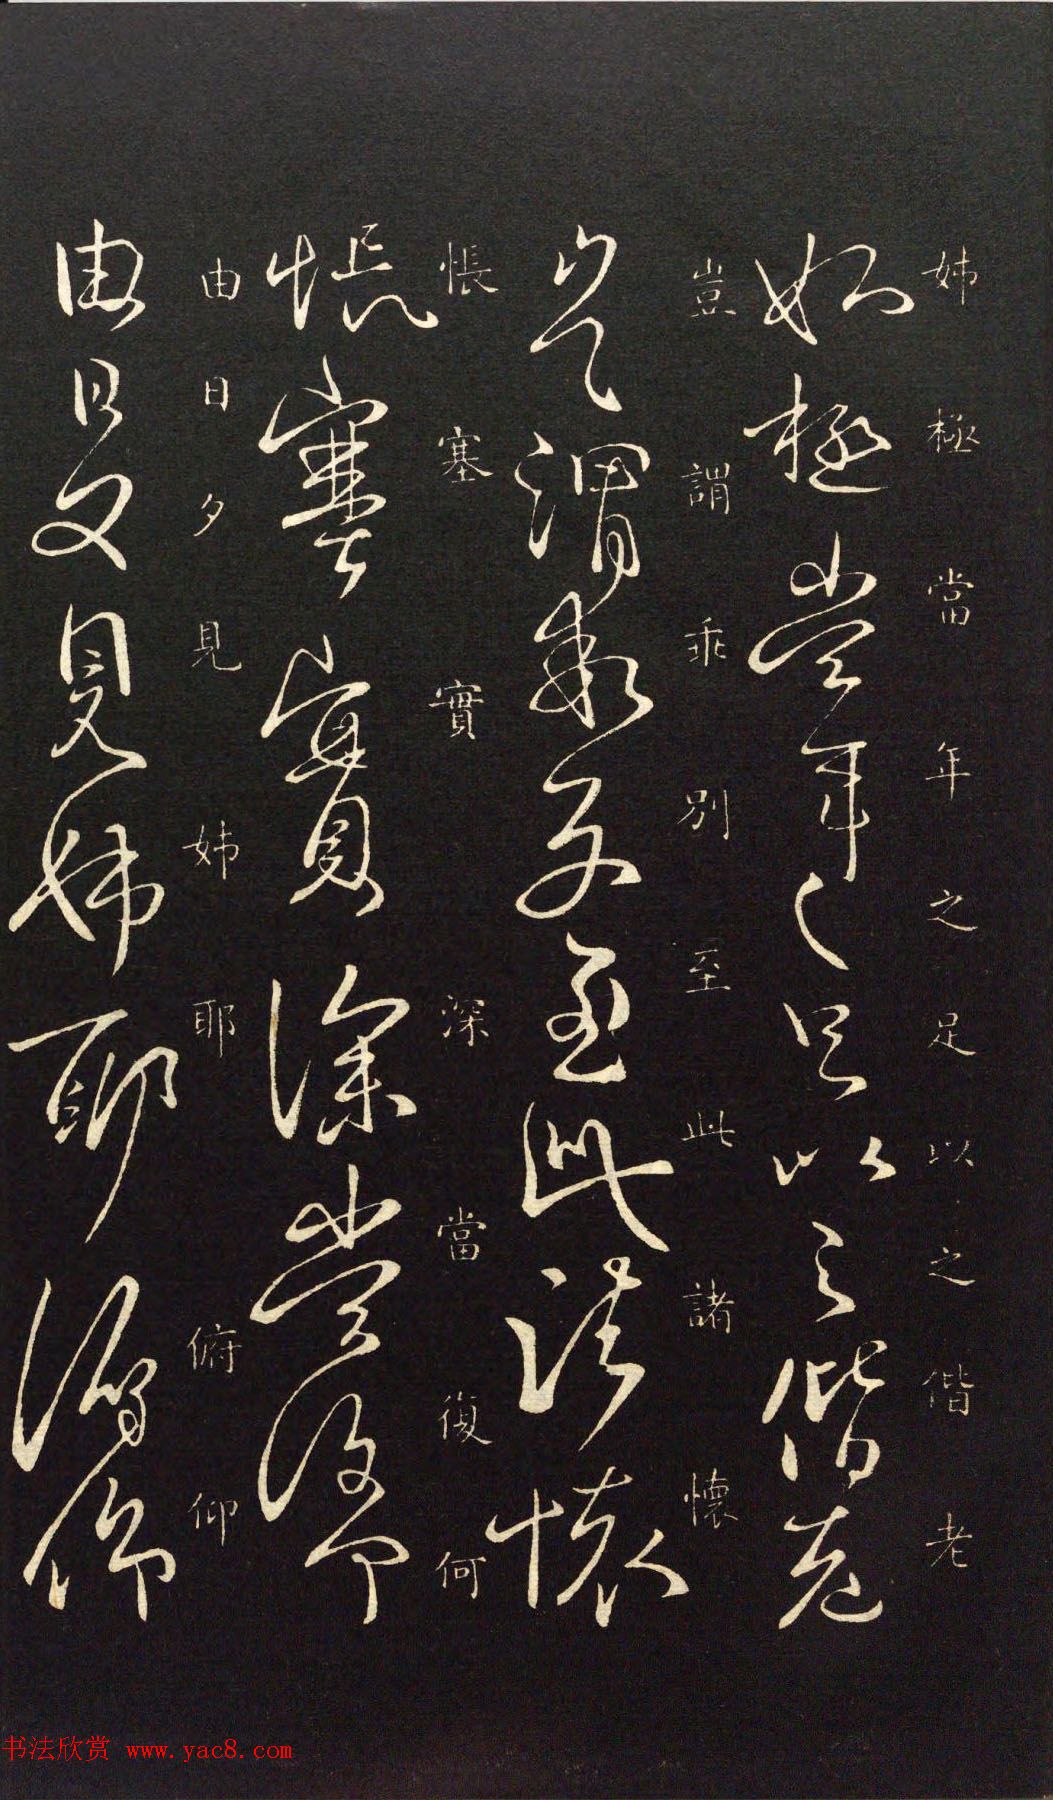 姊極當年之足以之偕老
姊極當年之足以之偕老
豈謂乖別至此諸懷
豈謂乖別至此諸懷
悵塞實深當復何
悵塞實深當復何
由日夕見姊耶俯仰
由日夕見姊耶俯仰
书法欣赏 www.yac8.com